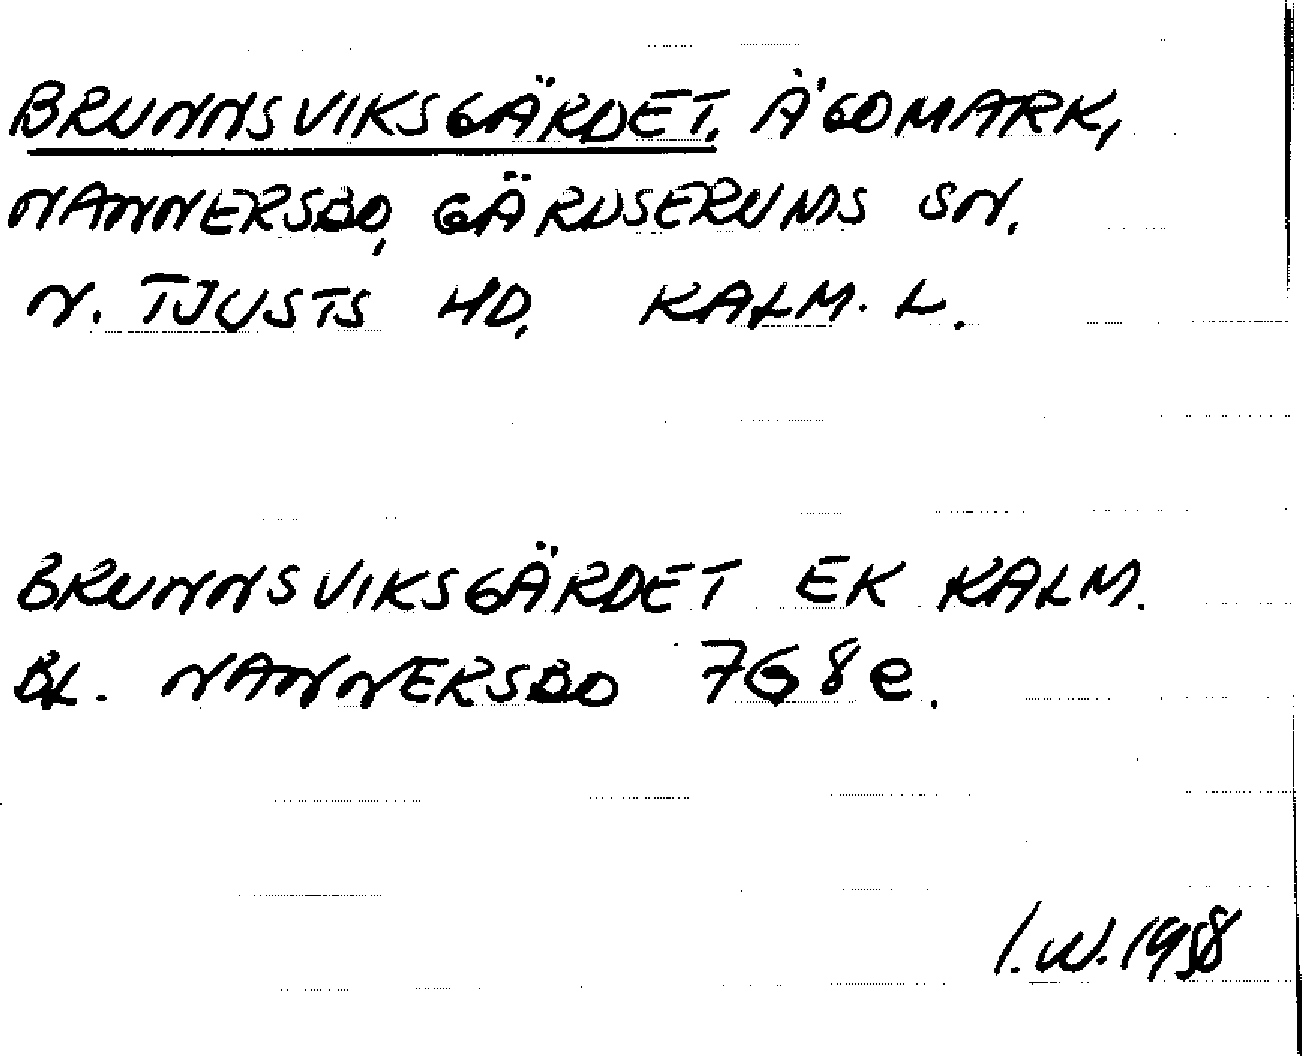 BRUNNSVIKSGÄRDET, ÄGOMARK,
NANNERSBO, GÄRDSERUMS SN.
N. TJUSTS HD, KALM. L.
BRUNNSVIKSGÄRDET EK KALM.
BL. NANNERSBO 7G8e.
I.W. 1958